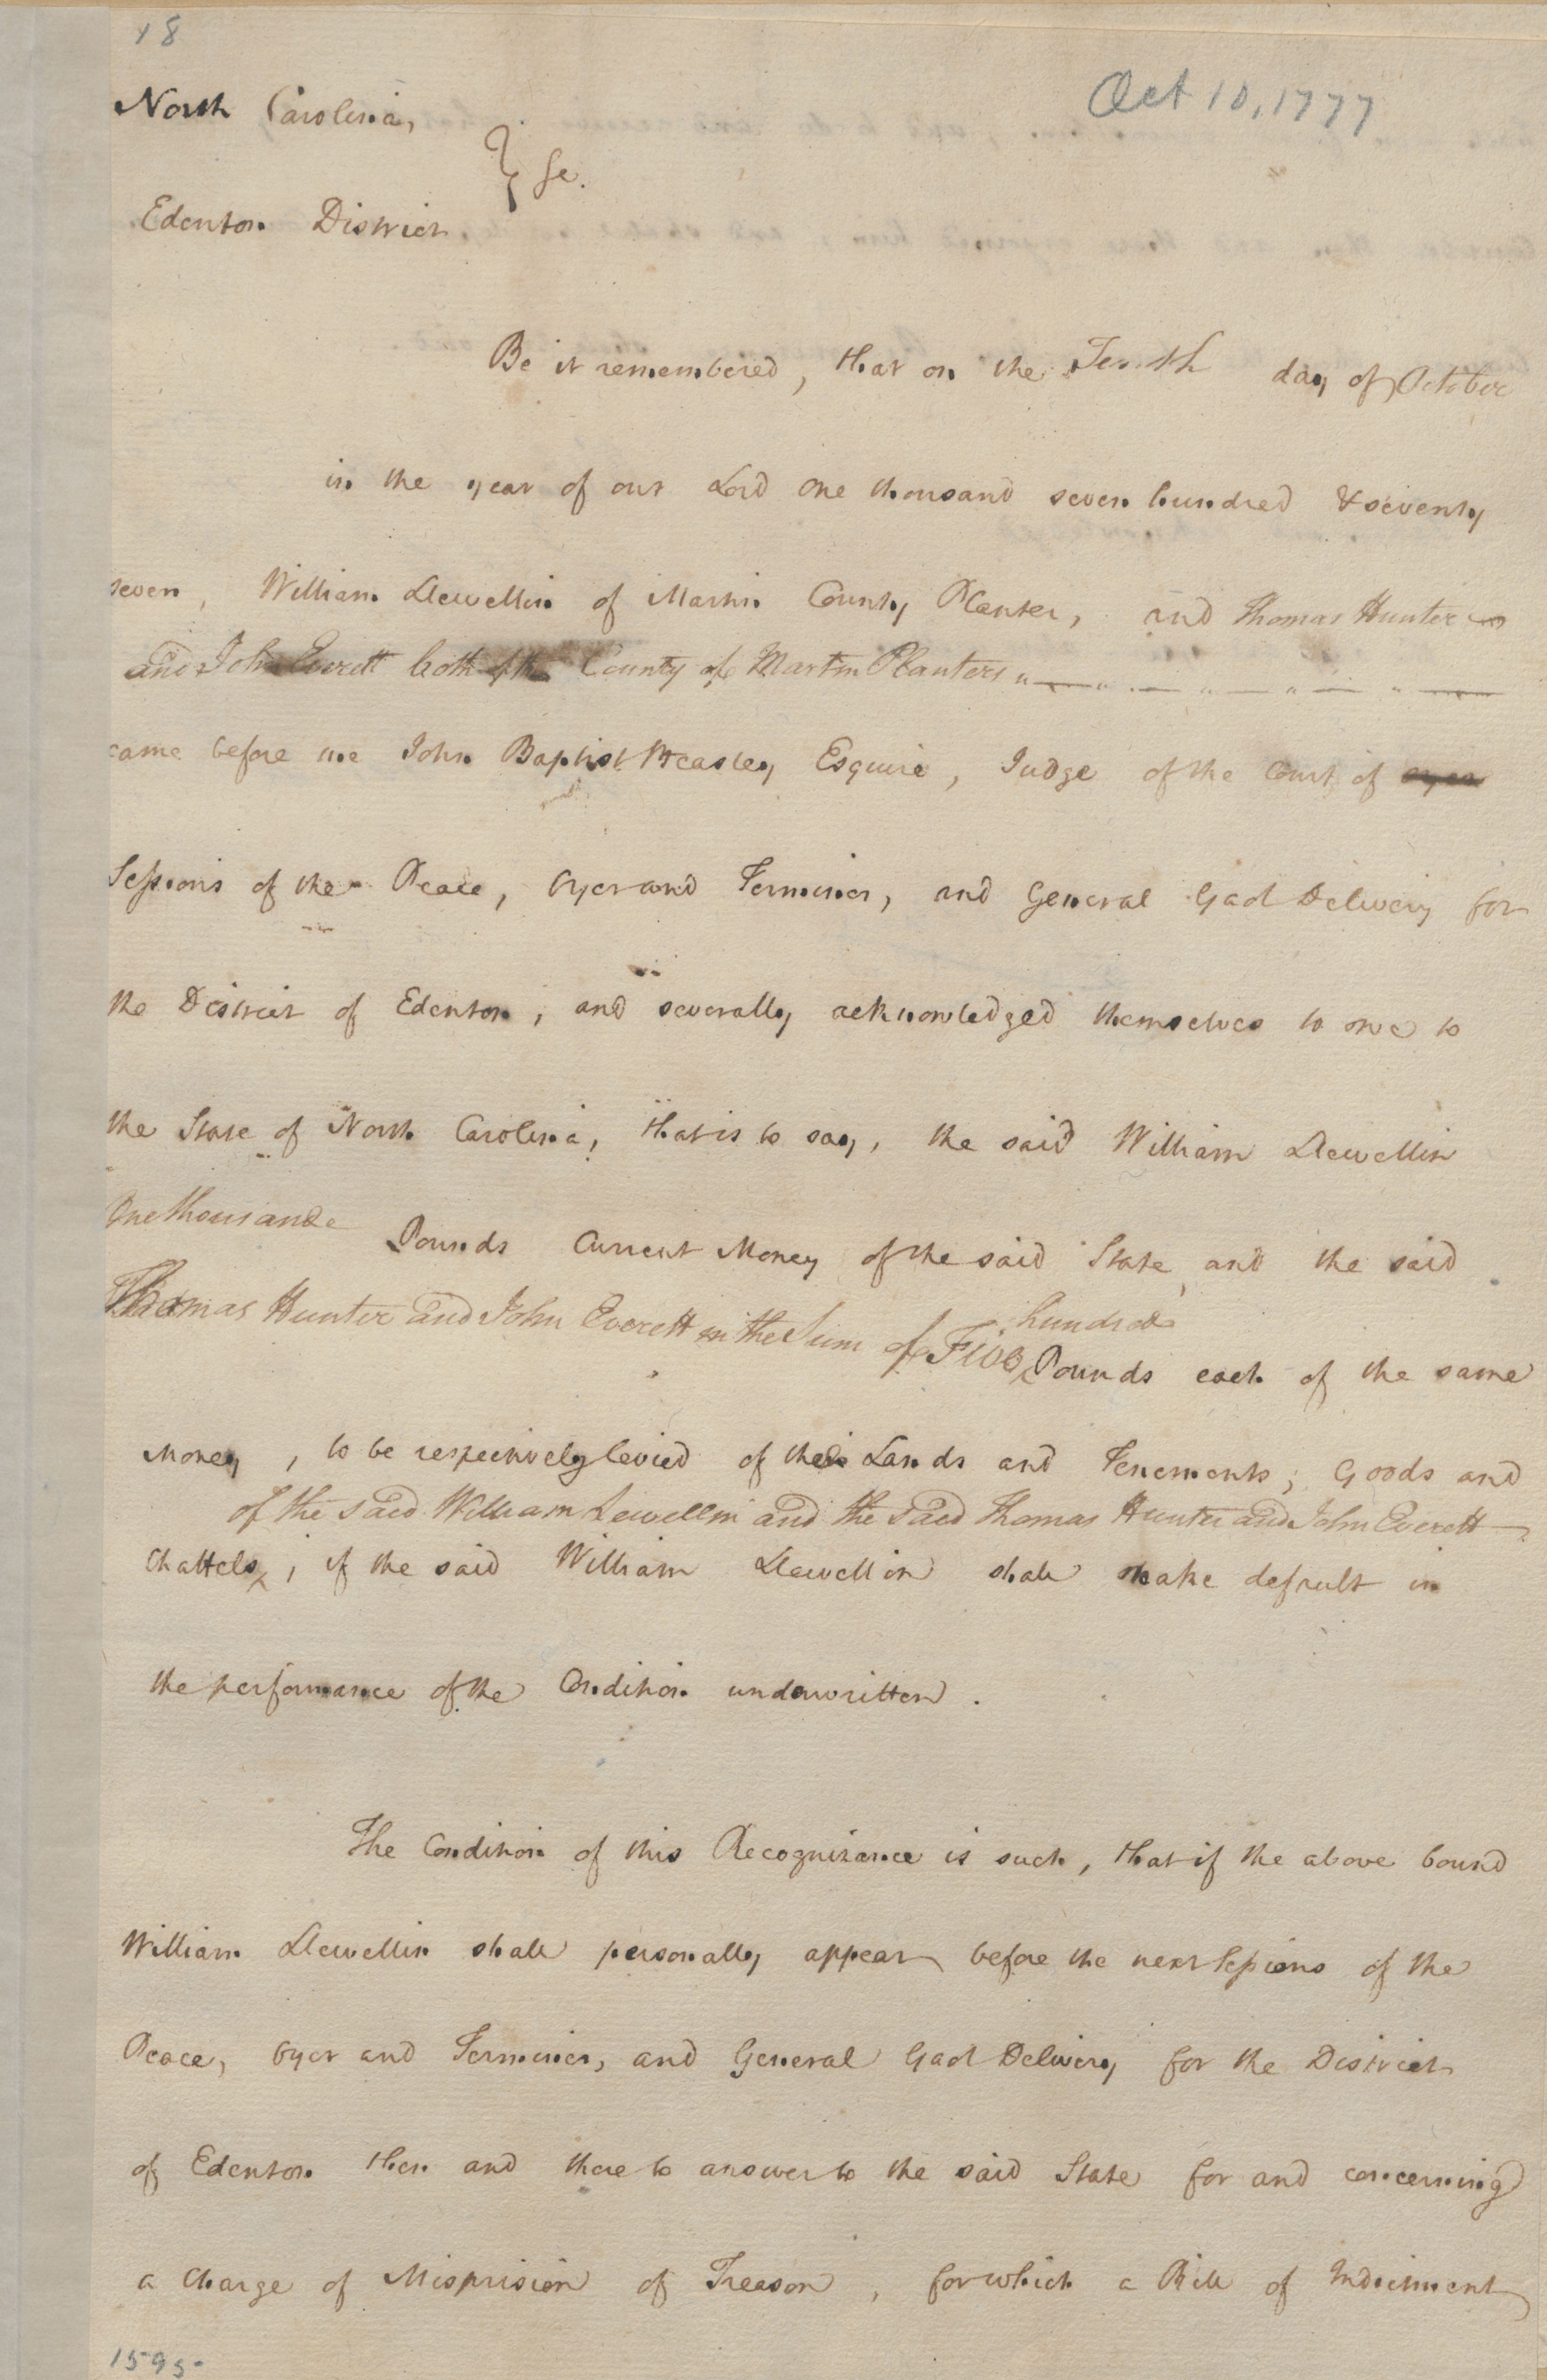 18
Oct 10, 1777
North Carolina,
} Sc.
Edenton District
Be it remembered, that on the Tenth day of October
in the year of our Lord one thousand seven hundred & seventy
seven, William Llewellin of Martin County Planter, and Thomas Hunter
and John Everett both of the County of Martin Planters
came before me John Baptist Beasley Esquire, Judge of the Court of oyer
Sessions of the Peace, Oyer and Terminer, and General Gaol Delivery for
the District of Edenton, and severally acknowledged themselves to owe to
the State of North Carolina, that is to say, the said William Llewellin
One thousand Pounds Current Money of the said State, and the said
hundred
Thomas Hunter and John Everett in the Sum of Five Pounds each of the same
Money, to be respectively levied of their Lands and Tenements, Goods and
of the said William Lewellin and the said Thomas Hunter and John Everett
Chattels, if the said William Llewellin shall make default in
the performance of the Condition underwritten.
The Condition of this Recognizance is such, that if the above bound
William Llewellin shall personally appear before the next Sessions of the
Peace, Oyer and Terminer, and General Gaol Delivery for the District
of Edenton then and there to answer to the said State for and concerning
a charge of Misprision of Treason, for which a Bill of Indictment
1595-